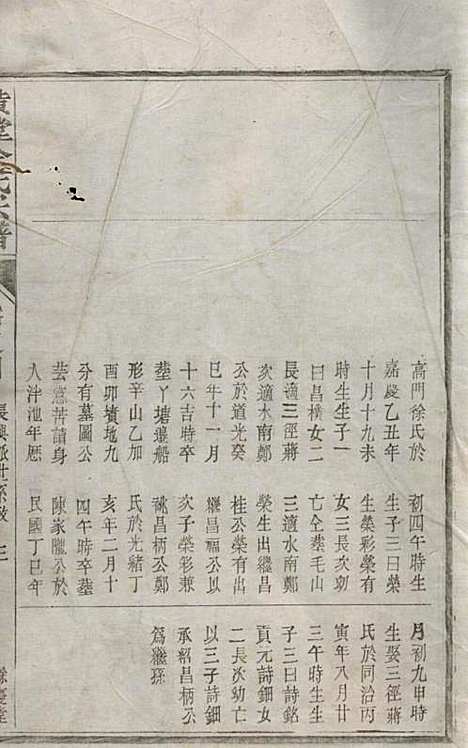 高門徐氏於
嘉慶乙丑年
十月十九未
時生生子一
曰昌樸女二
長適三徑蔣
次適水南鄭
公於道光癸
巳年十一月
十六吉時卒
塟丫塘船
形辛山乙加
酉卯墳地九
分有墓圖公
芸窻苦讀身
入泮池年歴
初四午時生
生子三曰榮
生榮彩榮有
女三長次㓜
亡仝塟毛山
三適水南鄭
榮生出繼昌
桂公榮有出
繼昌福公以
次子榮彩兼
祧昌柄公鄭
氏於光緒丁
亥年二月十
四午時卒塟
陳家隴公於
民國丁巳年
月初九申時
生娶三徑蔣
氏於同治丙
寅年八月廿
三午時生生
子三曰詩銘
貢元詩鈿女
二長次幼亡
以三子詩鈿
承紹昌柄公
為繼孫